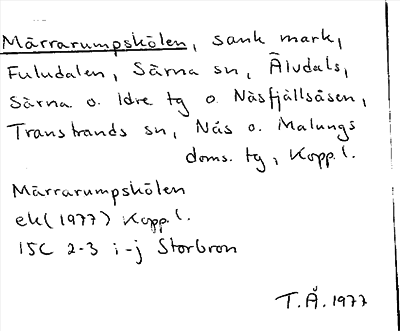 Märrarumpskölen, sank mark,
Fuludalen, Särna sn, Älvdals,
Särna o. Idre tg o. Näsfjällsåsen,
Transtrands sn, Nås o. Malungs
doms. tg, Kopp. l.
Märrarumpskölen
ek (1977) Kopp. l.
15C 2-3 i-j Storbron
T.Å. 1977